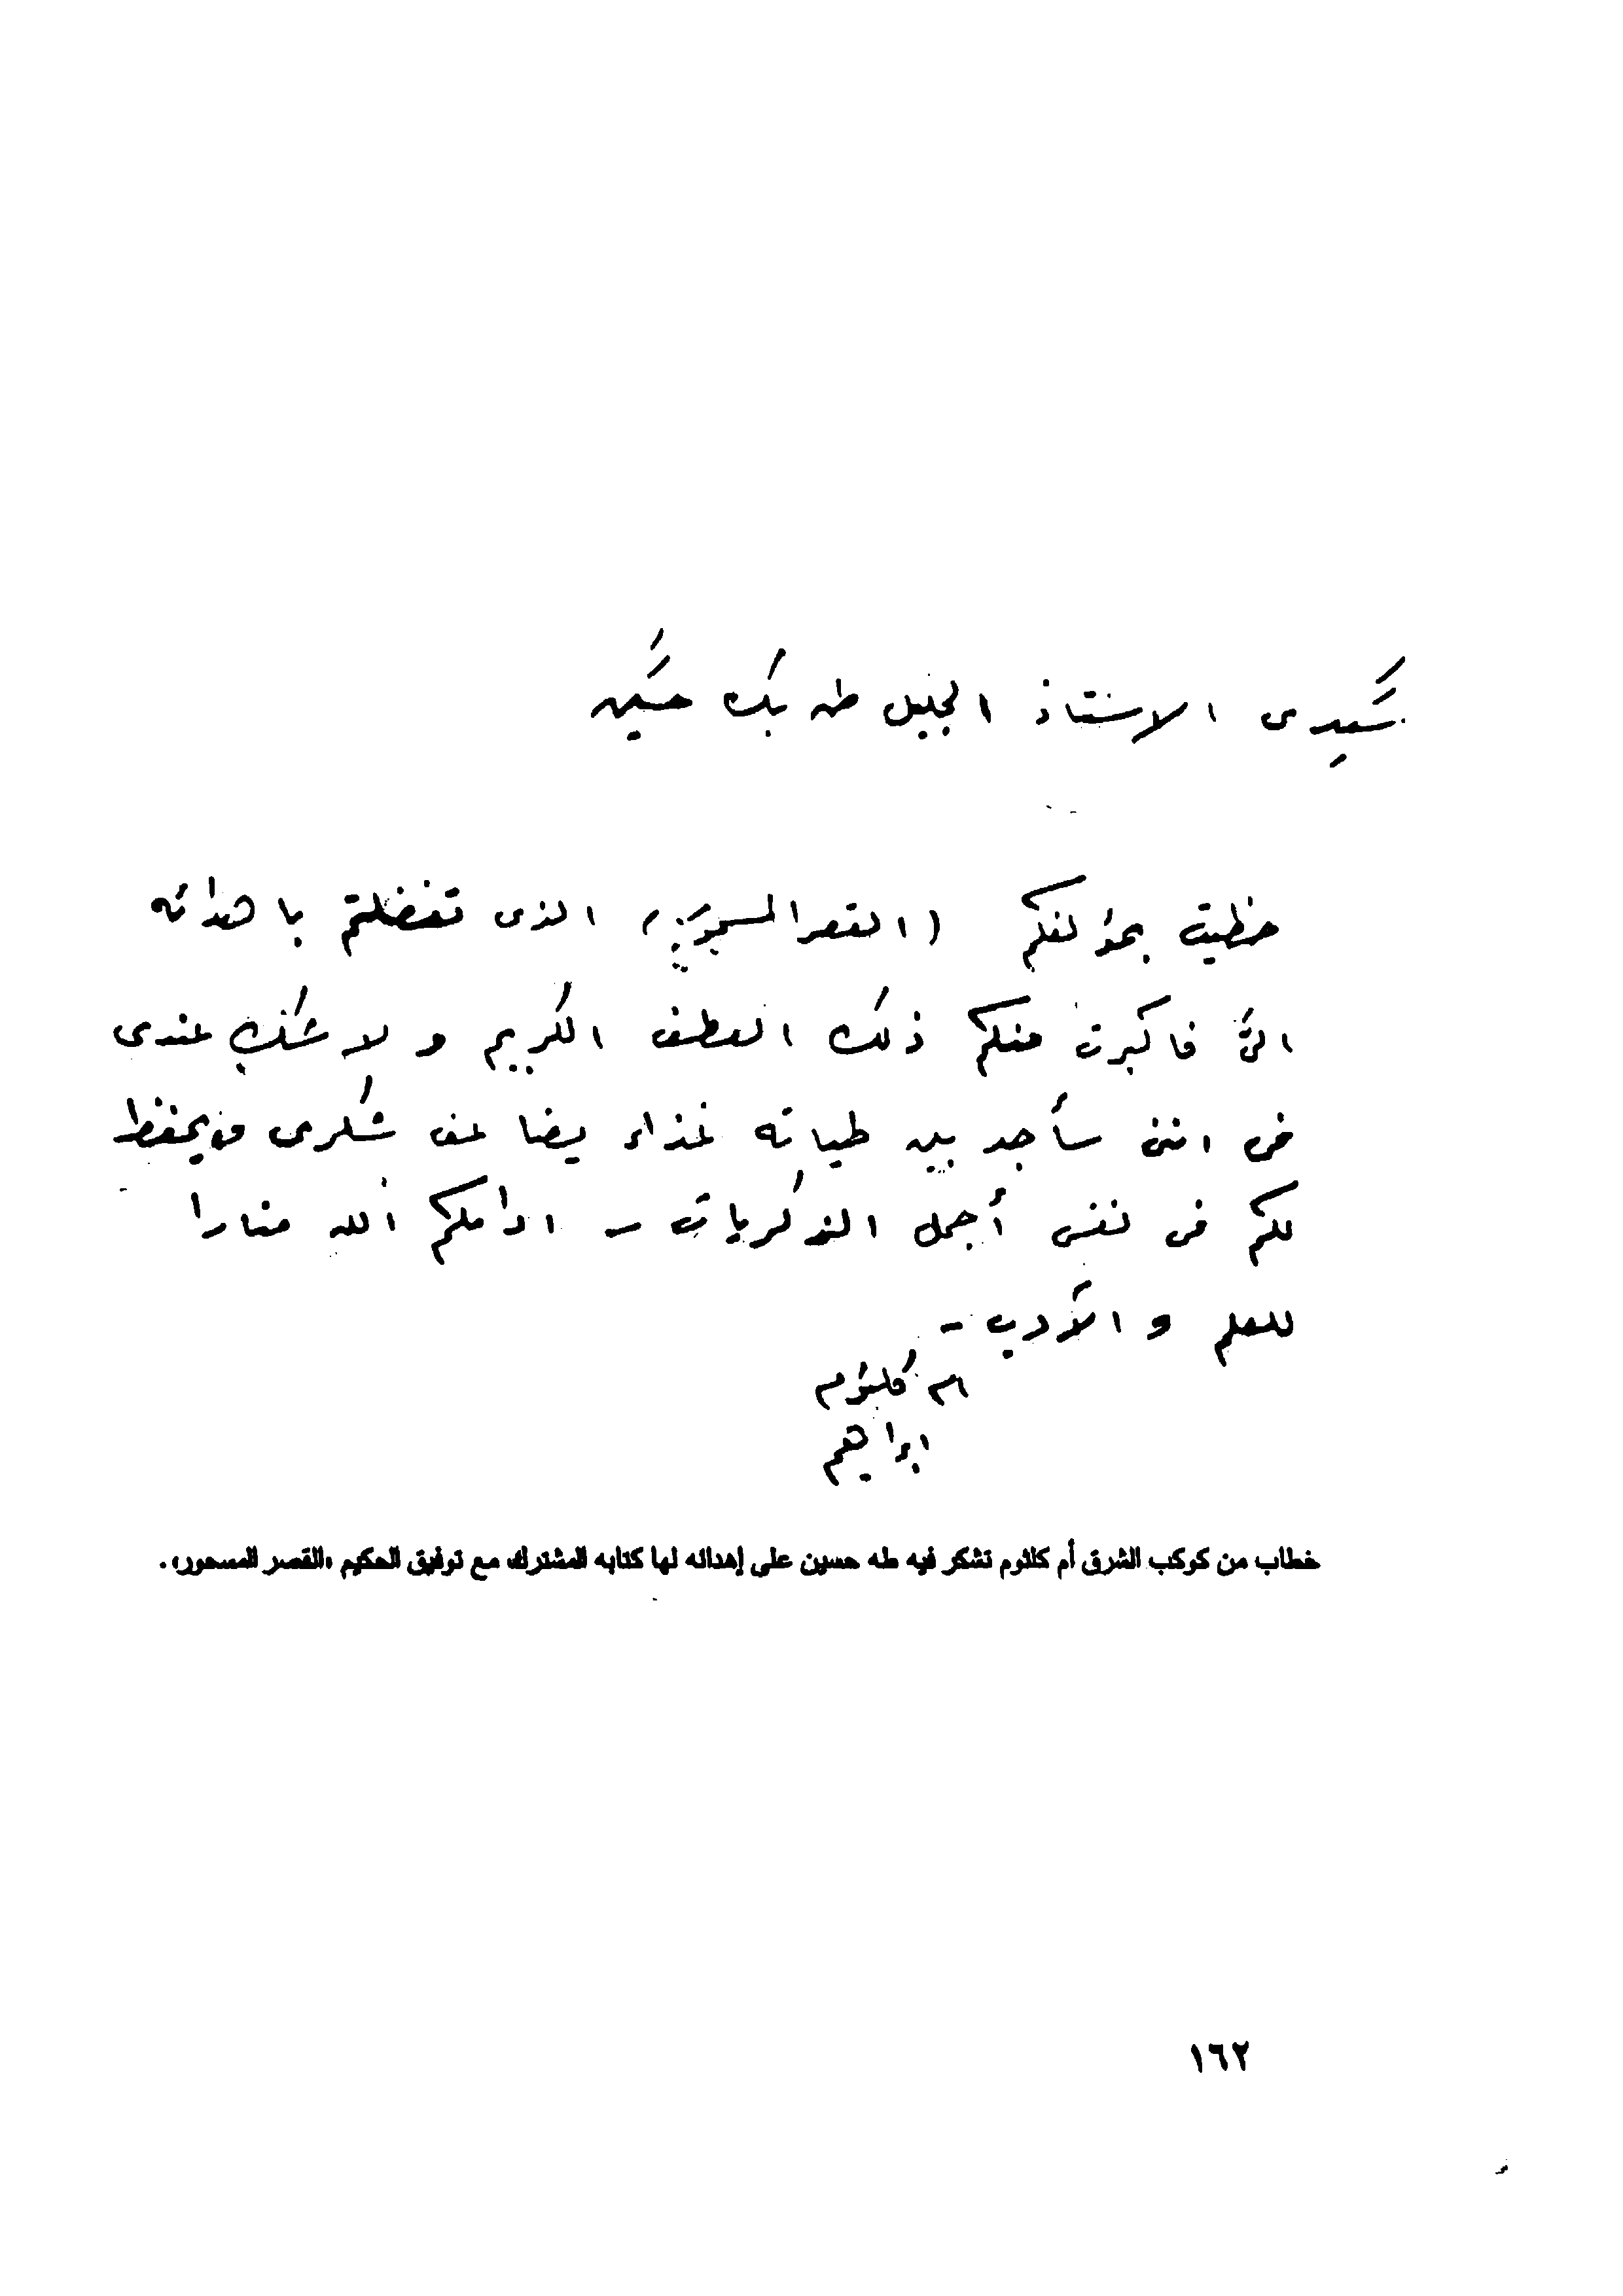 سيدى الاستاذ الجليل طه بك حسين
حظيت بمؤلفكم (القصر المسحور) الذى تفضلتم باهدائه
الىّ فاكبرت منكم ذلك العطف الكريم و لا شك عندى
فى اننى سأجد بين طياته غذاء يضاعف شكرى ويحفظ
لكم فى نفسى أجمل الذكريات – ادامكم الله منارا
للعلم و الأدب –
ام كلثوم
ابراهيم
خطاب من كوكب الشرق أم كلثوم تشكر فيه طه حسين على إهدائه لها كتابه المشترك مع توفيق الحكيم «القصر المسحور».
١٦٢